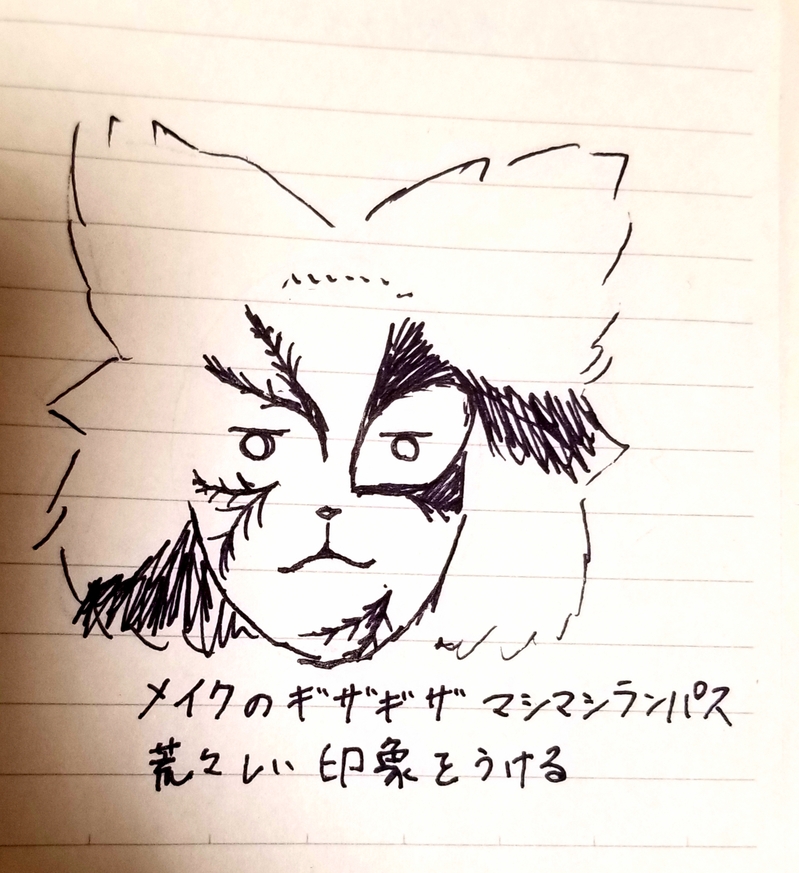 メイクのギザギザ マシマシランパス
荒々しい 印象をうける